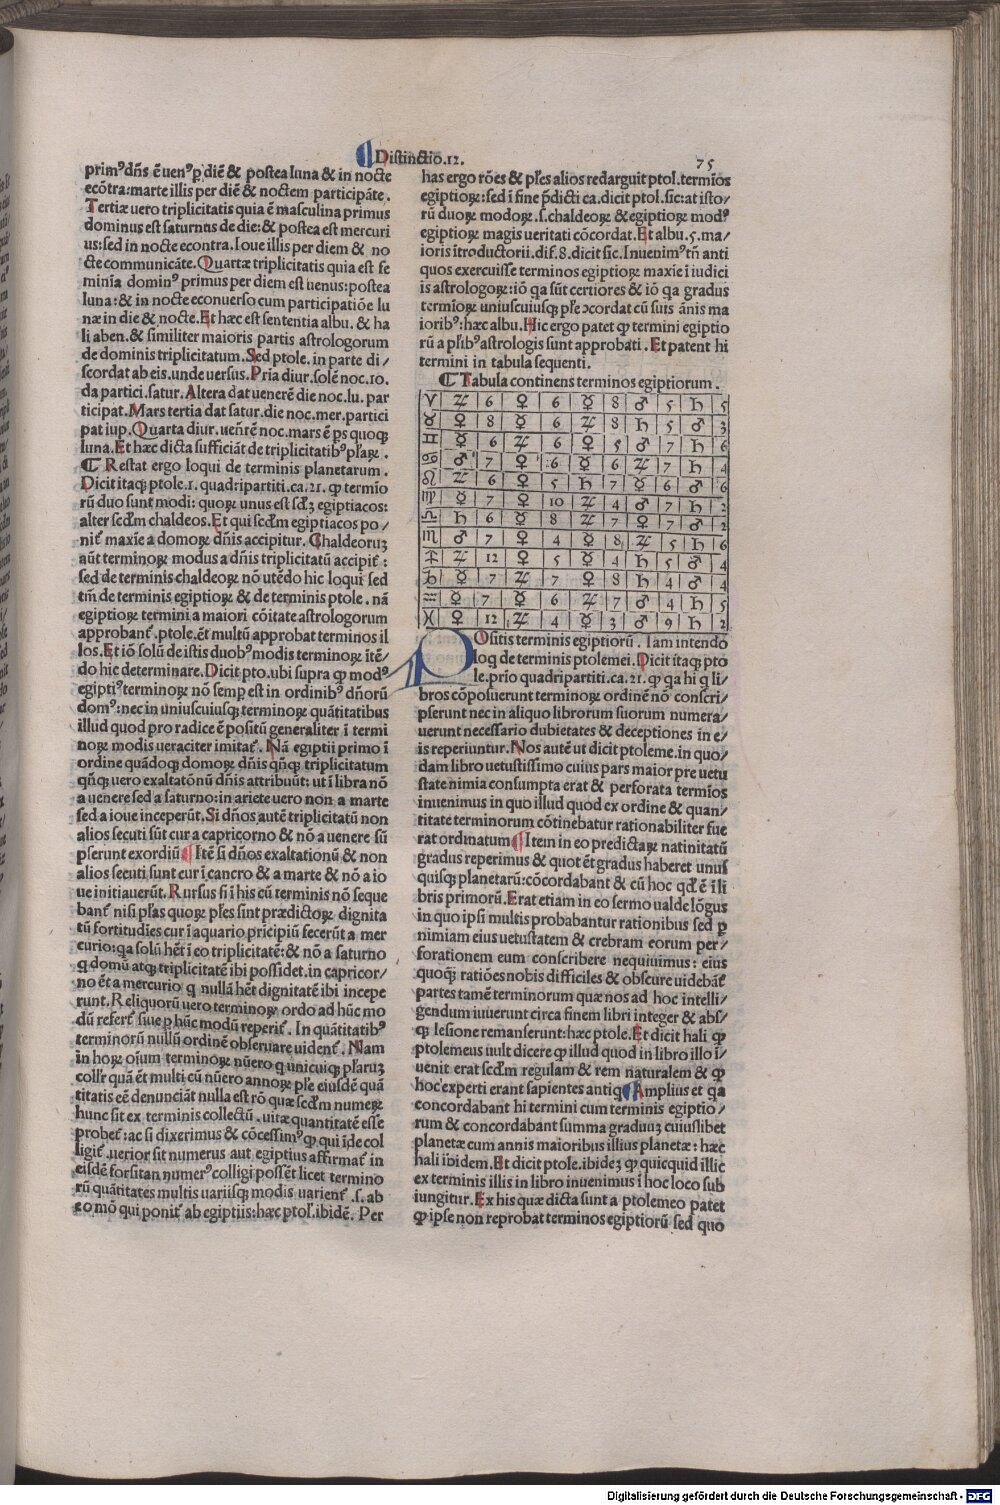 Distinctio.12.
75
primꝰ dñs ē uenꝰ ꝑ diē & postea luna & in nocte
ecōtra: marte illis per diē & noctem participāte.
Tertiæ uero triplicitatis quia ē masculina primus
dominus est saturnus de die: & postea est mercuri
us: sed in nocte econtra. Ioue illis per diem & no
cte communicāte. Quartæ triplicitatis quia est fe
minīa dominꝰ primus per diem est uenus: postea
luna: & in nocte econuerso cum participatiōe lu
næ in die & nocte. Et hæc est sententia albu. & ha
li aben. & similiter maioris partis astrologorum
de dominis triplicitatum. Sed ptole. in parte di/
scordat ab eis. unde uersus. Pria diur. solē noc. io.
da partici. satur. Altera dat uenerē die noc. lu. par
ticipat. Mars tertia dat satur. die noc. mer. partici
pat iup. Quarta diur. uenrē noc. mars ē ps quoqꝫ
luna. Et hæc dicta sufficiāt de triplicitatibꝰ pľaꝝ.
¶ Restat ergo loqui de terminis planetarum.
Dicit itaqꝫ ptole. 1. quadripartiti. ca. 21. ꝙ termio
rū duo sunt modi: quoꝝ unus est scďꝫ egiptiacos:
alter secďm chaldeos. Et qui secďm egiptiacos po/
nit̃ maxīe a domoꝝ dñis accipitur. Chaldeoruꝫ
aūt terminoꝝ modus a dñis triplicitatū accipit̃:
sed de terminis chaldeoꝝ nō utēdo hic loqui sed
tm̄ de terminis egiptioꝝ & de terminis ptole. nā
egiptioꝝ termini a maiori cōitate astrologorum
approbant̃. ptole. ēt multū approbat terminos il
los. Et iō solū de istis duobꝰ modis terminoꝝ ītē/
do hic determinare. Dicit pto. ubi supra ꝙ modꝰ
egiptiꝰ terminoꝝ nō semꝑ est in ordinibꝰ dñorū
domꝰ: nec in uniuscuiusqꝫ terminoꝝ quātitatibus
illud quod pro radice ē positū generaliter ī termi
noꝝ modis ueraciter imitat̃. Nā egiptii primo ī
ordine quādoqꝫ domoꝝ dñis qñqꝫ triplicitatum
qñqꝫ uero exaltatōnū dñis attribuūt: ut ī libra nō
a uenere sed a saturno: in ariete uero non a marte
sed a ioue inceperūt. Si dños autē triplicitatū non
alios secuti sūt cur a capricorno & nō a uenere sū
pserunt exordiū ¶ Itē si dños exaltationū & non
alios secuti sunt cur ī cancro & a marte & nō a io
ue initiauerūt. Rursus si ī his cū terminis nō seque
bant̃ nisi pľas quoꝝ pľes sunt prædictoꝝ dignita
tū fortitudīes cur ī aquario pricipiū fecerūt a mer
curio: qa solū hēt ī eo triplicitatē: & nō a saturno
q domū atqꝫ triplicitatē ibi possidet. in capricor/
no ēt a mercurio q nullā hēt dignitatē ibi incepe
runt. Reliquorū uero terminoꝝ ordo ad hūc mo
dū refert̃ siue ꝑ hūc modū reperit̃. In quātitatibꝰ
terminorū nullū ordinē obseruare uident̃. Nam
in hoꝝ oīum terminoꝝ nūero q unicuiqꝫ pľaruꝫ
collr quā ēt multi cū nūero annoꝝ pľe eiusdē quā
titatis eē denunciāt nulla est rō quæ secďm numeꝝ
hunc sit ex terminis collectū. uitæ quantitatē esse
probet̃: ac si dixerimus & cōcessimꝰ ꝙ qui īde col
ligit̃. uerior sit numerus aut egiptius affirmat̃ in
eisdē forsitan numerꝰ colligi possēt licet termino
rū quātitates multis uariisqꝫ modis uarient̃. s. ab
eo mō qui ponit̃ ab egiptiis: hæc ptol. ibidē. Per
has ergo rōes & pľes alios redarguit ptol. termīos
egiptioꝝ: sed ī fine p̄dicti ca. dicit ptol. sic: at isto/
rū duoꝝ modoꝝ. s. chaldeoꝝ & egiptioꝝ modꝰ
egiptioꝝ magis ueritati cōcordat. Et albu. 5. ma/
ioris ītroductorii. dif. 8. dicit sic. Inuenimꝰ tñ anti
quos exercuisse terminos egiptioꝝ maxīe ī iudici
is astrologoꝝ: iō qa sūt certiores & iō qa gradus
termīoꝝ uniuscuiusqꝫ pľe ɔcordat cū suis ānis ma
ioribꝰ: hæc albu. Hic ergo patet ꝙ termini egiptio
rū a pľibꝰ astrologis sunt approbati. Et patent hi
termini in tabula sequenti.
¶ Tabula continens terminos egiptiorum.
♈ ♃ 6 ♀ 6 ☿ 8 ♂ 5 ♄ 5
♉ ♀ 8 ☿ 6 ♃ 8 ♄ 5 ♂ 3
♊ ☿ 6 ♃ 6 ♀ 5 ♂ 7 ♄ 6
♋ ♂ 7 ♀ 6 ☿ 6 ♃ 7 ♄ 4
♌ ♃ 6 ♀ 5 ♄ 7 ☿ 6 ♂ 6
♍ ☿ 7 ♀ 10 ♃ 4 ♂ 7 ♄ 2
♎ ♄ 6 ☿ 8 ♃ 7 ♀ 7 ♂ 2
♏ ♂ 7 ♀ 4 ☿ 8 ♃ 5 ♄ 6
♐ ♃ 12 ♀ 5 ☿ 4 ♄ 5 ♂ 4
♑ ☿ 7 ♃ 7 ♀ 8 ♄ 4 ♂ 4
♒ ☿ 7 ☿ 6 ♃ 7 ♂ 4 ♄ 5
♓ ♀ 12 ♃ 4 ☿ 3 ♂ 9 ♄ 2
POsitis terminis egiptiorū. Iam intendo
loq de terminis ptolemei. Dicit itaqꝫ pto
le. prio quadripartiti. ca. 21. ꝙ qa hi q li/
bros cōposuerunt terminoꝝ ordinē nō conscri/
pserunt nec in aliquo librorum suorum numera/
uerunt necessario dubietates & deceptiones in e/
is reperiuntur. Nos autē ut dicit ptoleme. in quo/
dam libro uetustissimo cuius pars maior pre uetu
state nimia consumpta erat & perforata termīos
inuenimus in quo illud quod ex ordine & quan/
titate terminorum cōtinebatur rationabiliter fue
rat ordinatum ¶ Item in eo predictaꝝ natinitatū
gradus reperimus & quot ēt gradus haberet unus
quisqꝫ planetarū: cōcordabant & cū hoc qďē ē ī li
bris primorū. Erat etiam in eo sermo ualde lōgus
in quo ipsi multis probabantur rationibus sed ꝑ
nimiam eius uetustatem & crebram eorum per/
forationem eum conscribere nequiuimus: eius
quoqꝫ ratiōes nobis difficiles & obscure uidebāt̃
partes tamē terminorum quæ nos ad hoc intelli/
gendum iuuerunt circa finem libri integer & abs/
qꝫ lesione remanserunt: hæc ptole. Et dicit hali ꝙ
ptolemeus uult dicere ꝙ illud quod in libro illo ī/
uenit erat secďm regulam & rem naturalem & ꝙ
hoc experti erant sapientes antiq ¶ Amplius et qa
concordabant hi termini cum terminis egiptio/
rum & concordabant summa graduuꝫ cuiuslibet
planetæ cum annis maioribus illius planetæ: hæc
hali ibidem. Et dicit ptole. ibideꝫ ꝙ quicquid illic
ex terminis illis in libro inuenimus ī hoc loco sub
iungitur. Ex his quæ dicta sunt a ptolemeo patet
ꝙ ipse non reprobat terminos egiptiorū sed quo
Digitalisierung gefördert durch die Deutsche Forschungsgemeinschaft - DFG